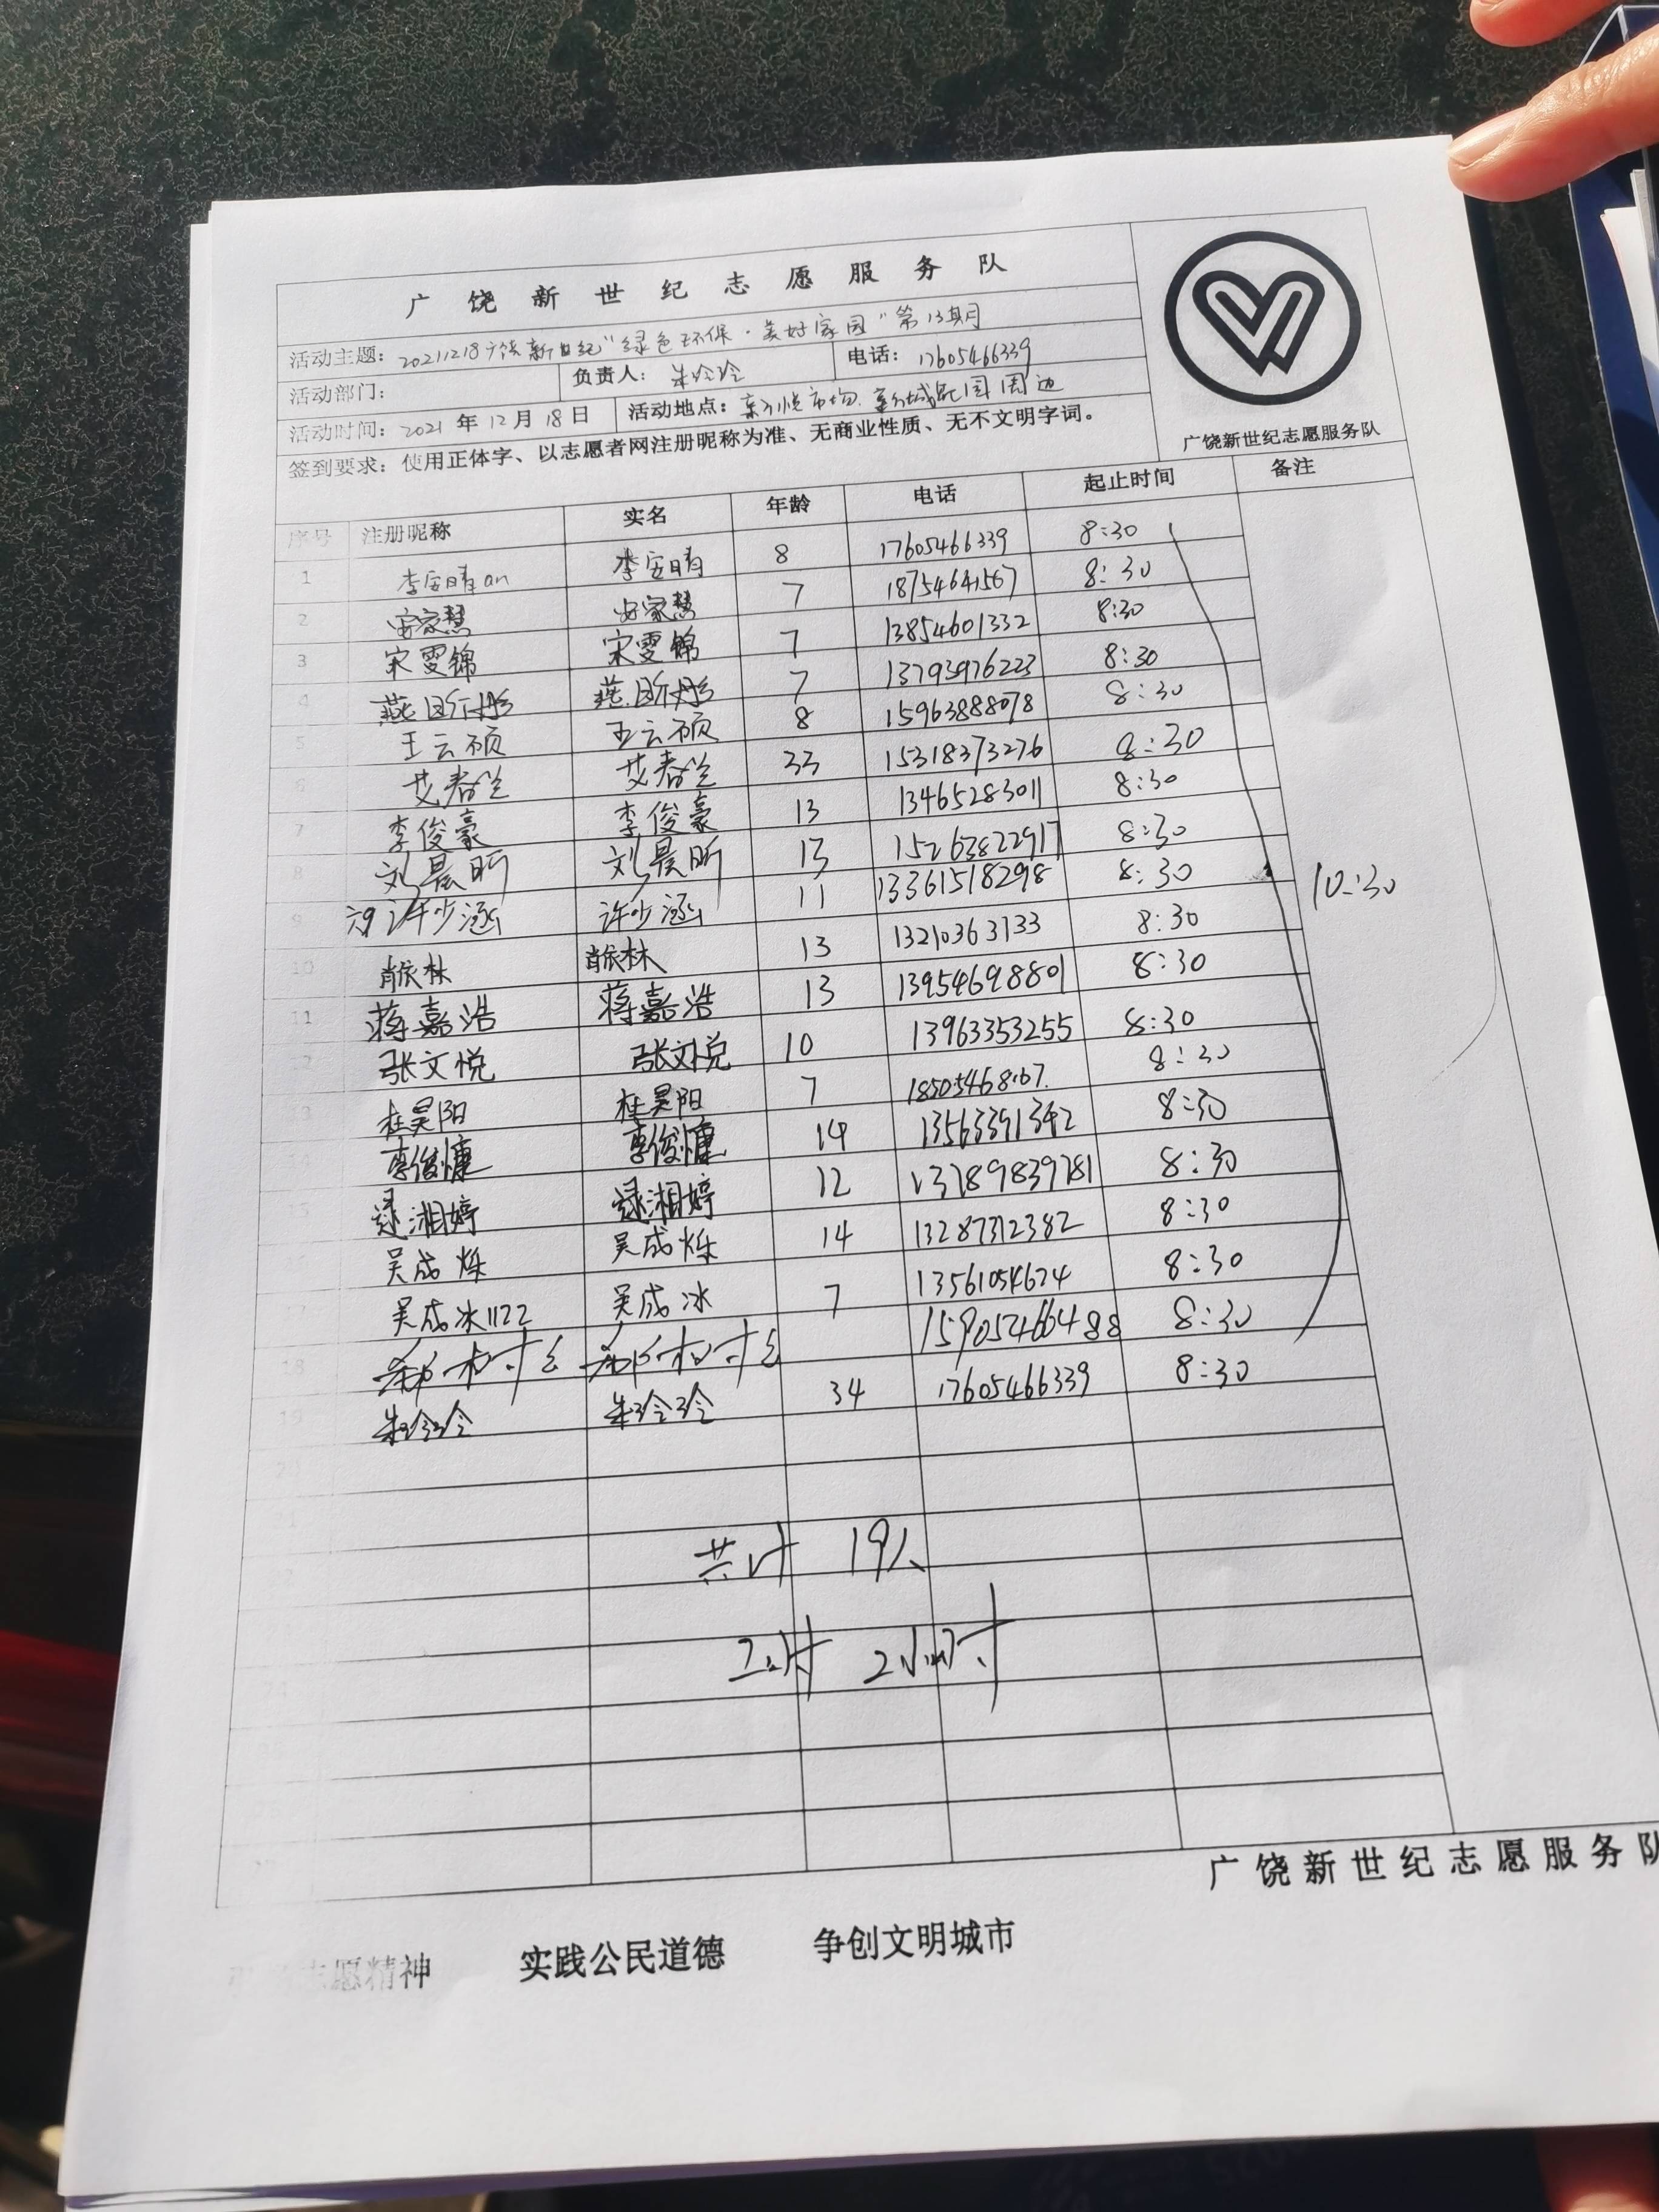 广饶新世纪志愿服务队
活动主题：20211218广饶新世纪"绿色环保·美好家园"第13期
活动部门： 负责人：朱玲玲 电话：17605466339
活动时间：2021年12月18日 活动地点：新悦市场. 新城花园周边
签到要求：使用正体字、以志愿者网注册昵称为准、无商业性质、无不文明字词。
广饶新世纪志愿服务队
序号 注册昵称 实名 年龄 电话 起止时间 备注
1 李安晴an 李安晴 8 17605466339 8:30
2 安家慧 安家慧 7 18754641567 8:30
3 宋雯锦 宋雯锦 7 13854601332 8:30
4 燕昕彤 燕昕彤 7 13793976223 8:30
5 王云硕 王云硕 8 15963888078 8:30
6 艾春兰 艾春兰 33 15318373276 8:30
7 李俊豪 李俊豪 13 13465283011 8:30
8 刘晨昕 刘晨昕 13 15263822917 8:30
9 许少涵 许少涵 11 13361518298 8:30
10:30
10 肖依林 肖依林 13 13210363133 8:30
11 蒋嘉浩 蒋嘉浩 13 13954698801 8:30
12 张文悦 张文悦 10 13963353255 8:30
13 杜昊阳 杜昊阳 7 8:30
14 李俊慷 李俊慷 14 13563391342 8:30
15 湘婷 湘婷 12 13789839781 8:30
16 吴成烁 吴成烁 14 13287312382 8:30
17 吴成冰1122 吴成冰 7 13561054624 8:30
18 8:30
19 朱玲玲 朱玲玲 34 17605466339 8:30
共计 19人
工时 2小时
广饶新世纪志愿服务队
志愿精神 实践公民道德 争创文明城市